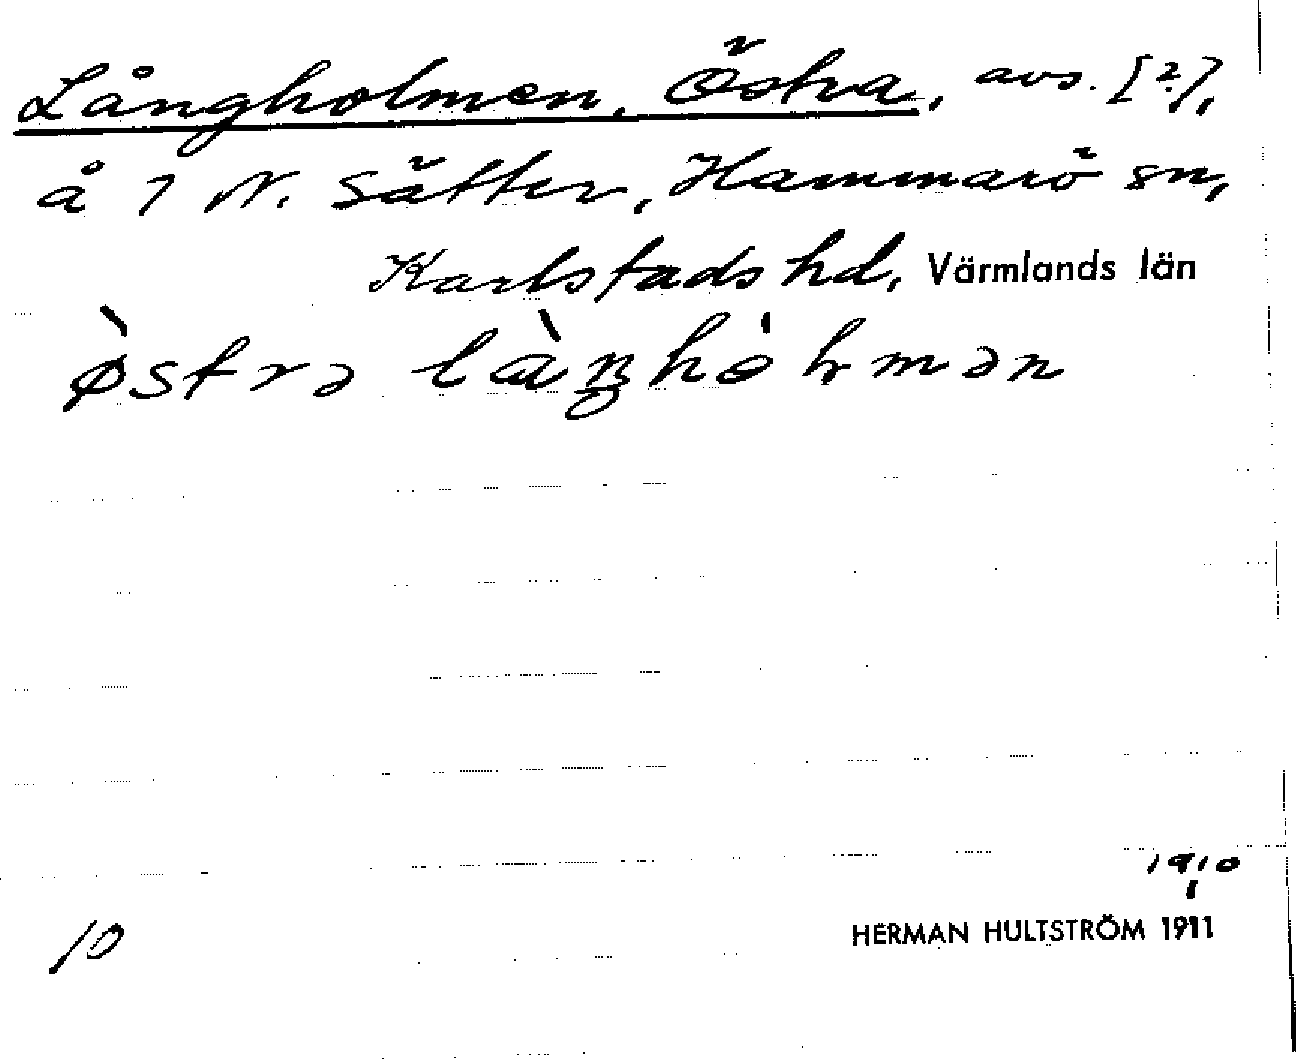 Långholmen, Östra, avs. [?],
å 1 N. Sätter, Hammarö sn,
Karlstads hd, Värmlands län
ø̀strə làŋhòlmən
1910
10
HERMAN HULTSTRÖM 1911